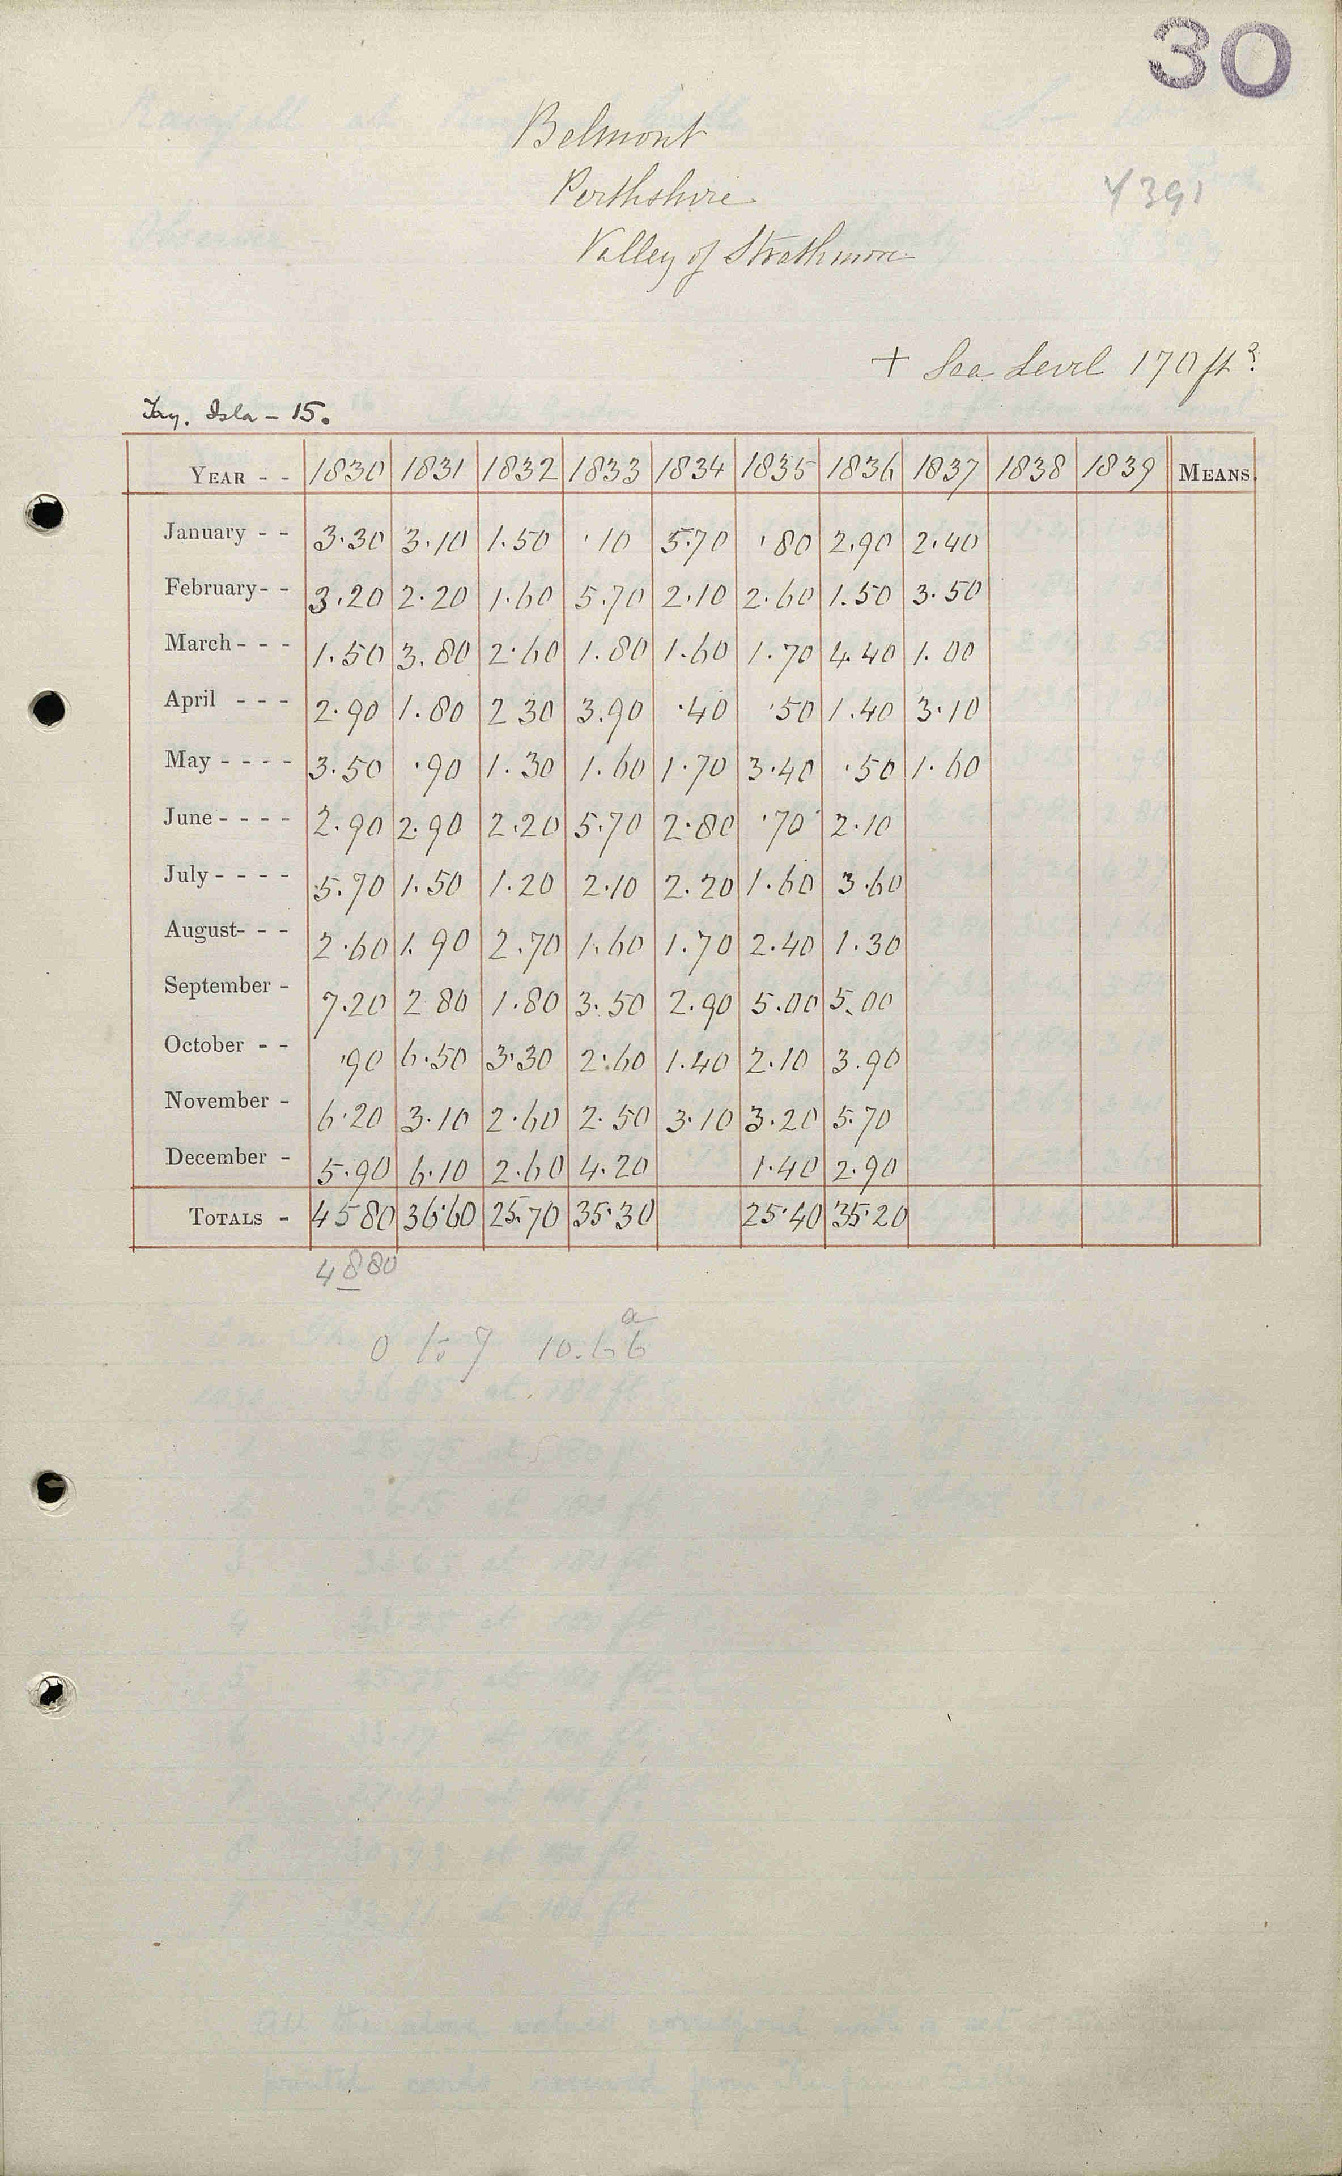 30
Belmont
Perthshire
Y391
Valley of Strathmore
+ Sea Level 170 ft?
Tay. Isla - 15.
YEAR - - 1830 1831 1832 1833 1834 1835 1836 1837 1838 1839 MEANS.
January - - 3.30 3.10 1.50 .10 5.70 .80 2.90 2.40
February - - 3.20 2.20 1.60 5.70 2.10 2.60 1.50 3.50
March - - - 1.50 3.80 2.60 1.80 1.60 1.70 4.40 1.00
April - - - 2.90 1.80 2 30 3.90 .40 .50 1.40 3.10
May - - - - 3.50 .90 1.30 1.60 1.70 3.40 .50 1.60
June - - - - 2.90 2.90 2.20 5.70 2.80 .70 2.10
July - - - - 5.70 1.50 1.20 2.10 2.20 1.60 3.60
August - - - 2.60 1.90 2.70 1.60 1.70 2.40 1.30
September - 7.20 2 80 1.80 3.50 2.90 5.00 5.00
October - - .90 6.50 3.30 2.60 1.40 2.10 3.90
November - 6.20 3.10 2.60 2.50 3.10 3.20 5.70
December - 5.90 6.10 2.60 4.20 1.40 2.90
TOTALS - 45 80 36.60 25.70 35.30 25.40 35.20
48 80
a
0 to 7 10.66